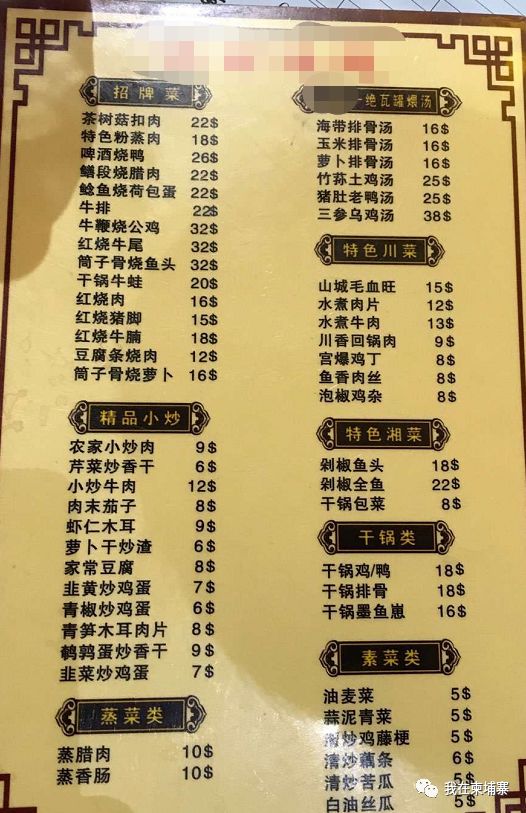 招牌菜
茶树菇扣肉 22$
特色粉蒸肉 18$
啤酒烧鸭 26$
鳝段烧腊肉 22$
鲶鱼烧荷包蛋 22$
牛排 22$
牛鞭烧公鸡 32$
红烧牛尾 32$
筒子骨烧鱼头 32$
干锅牛蛙 20$
红烧肉 16$
红烧猪脚 15$
红烧牛腩 18$
豆腐条烧肉 12$
筒子骨烧萝卜 16$
精品小炒
农家小炒肉 9$
芹菜炒香干 6$
小炒牛肉 12$
肉末茄子 8$
虾仁木耳 9$
萝卜干炒渣 6$
家常豆腐 8$
韭黄炒鸡蛋 7$
青椒炒鸡蛋 6$
青笋木耳肉片 8$
鹌鹑蛋炒香干 9$
韭菜炒鸡蛋 7$
蒸菜类
蒸腊肉 10$
蒸香肠 10$
一绝瓦罐煨汤
海带排骨汤 16$
玉米排骨汤 16$
萝卜排骨汤 16$
竹荪土鸡汤 25$
猪肚老鸭汤 25$
三参乌鸡汤 38$
特色川菜
山城毛血旺 15$
水煮肉片 12$
水煮牛肉 13$
川香回锅肉 9$
宫爆鸡丁 8$
鱼香肉丝 8$
泡椒鸡杂 8$
特色湘菜
剁椒鱼头 18$
剁椒全鱼 22$
干锅包菜 8$
干锅类
干锅鸡/鸭 18$
干锅排骨 18$
干锅墨鱼崽 16$
素菜类
油麦菜 5$
蒜泥青菜 5$
炒鸡藤梗 5$
清炒藕条 6$
清炒苦瓜 5$
白油丝瓜 5$
我在柬埔寨